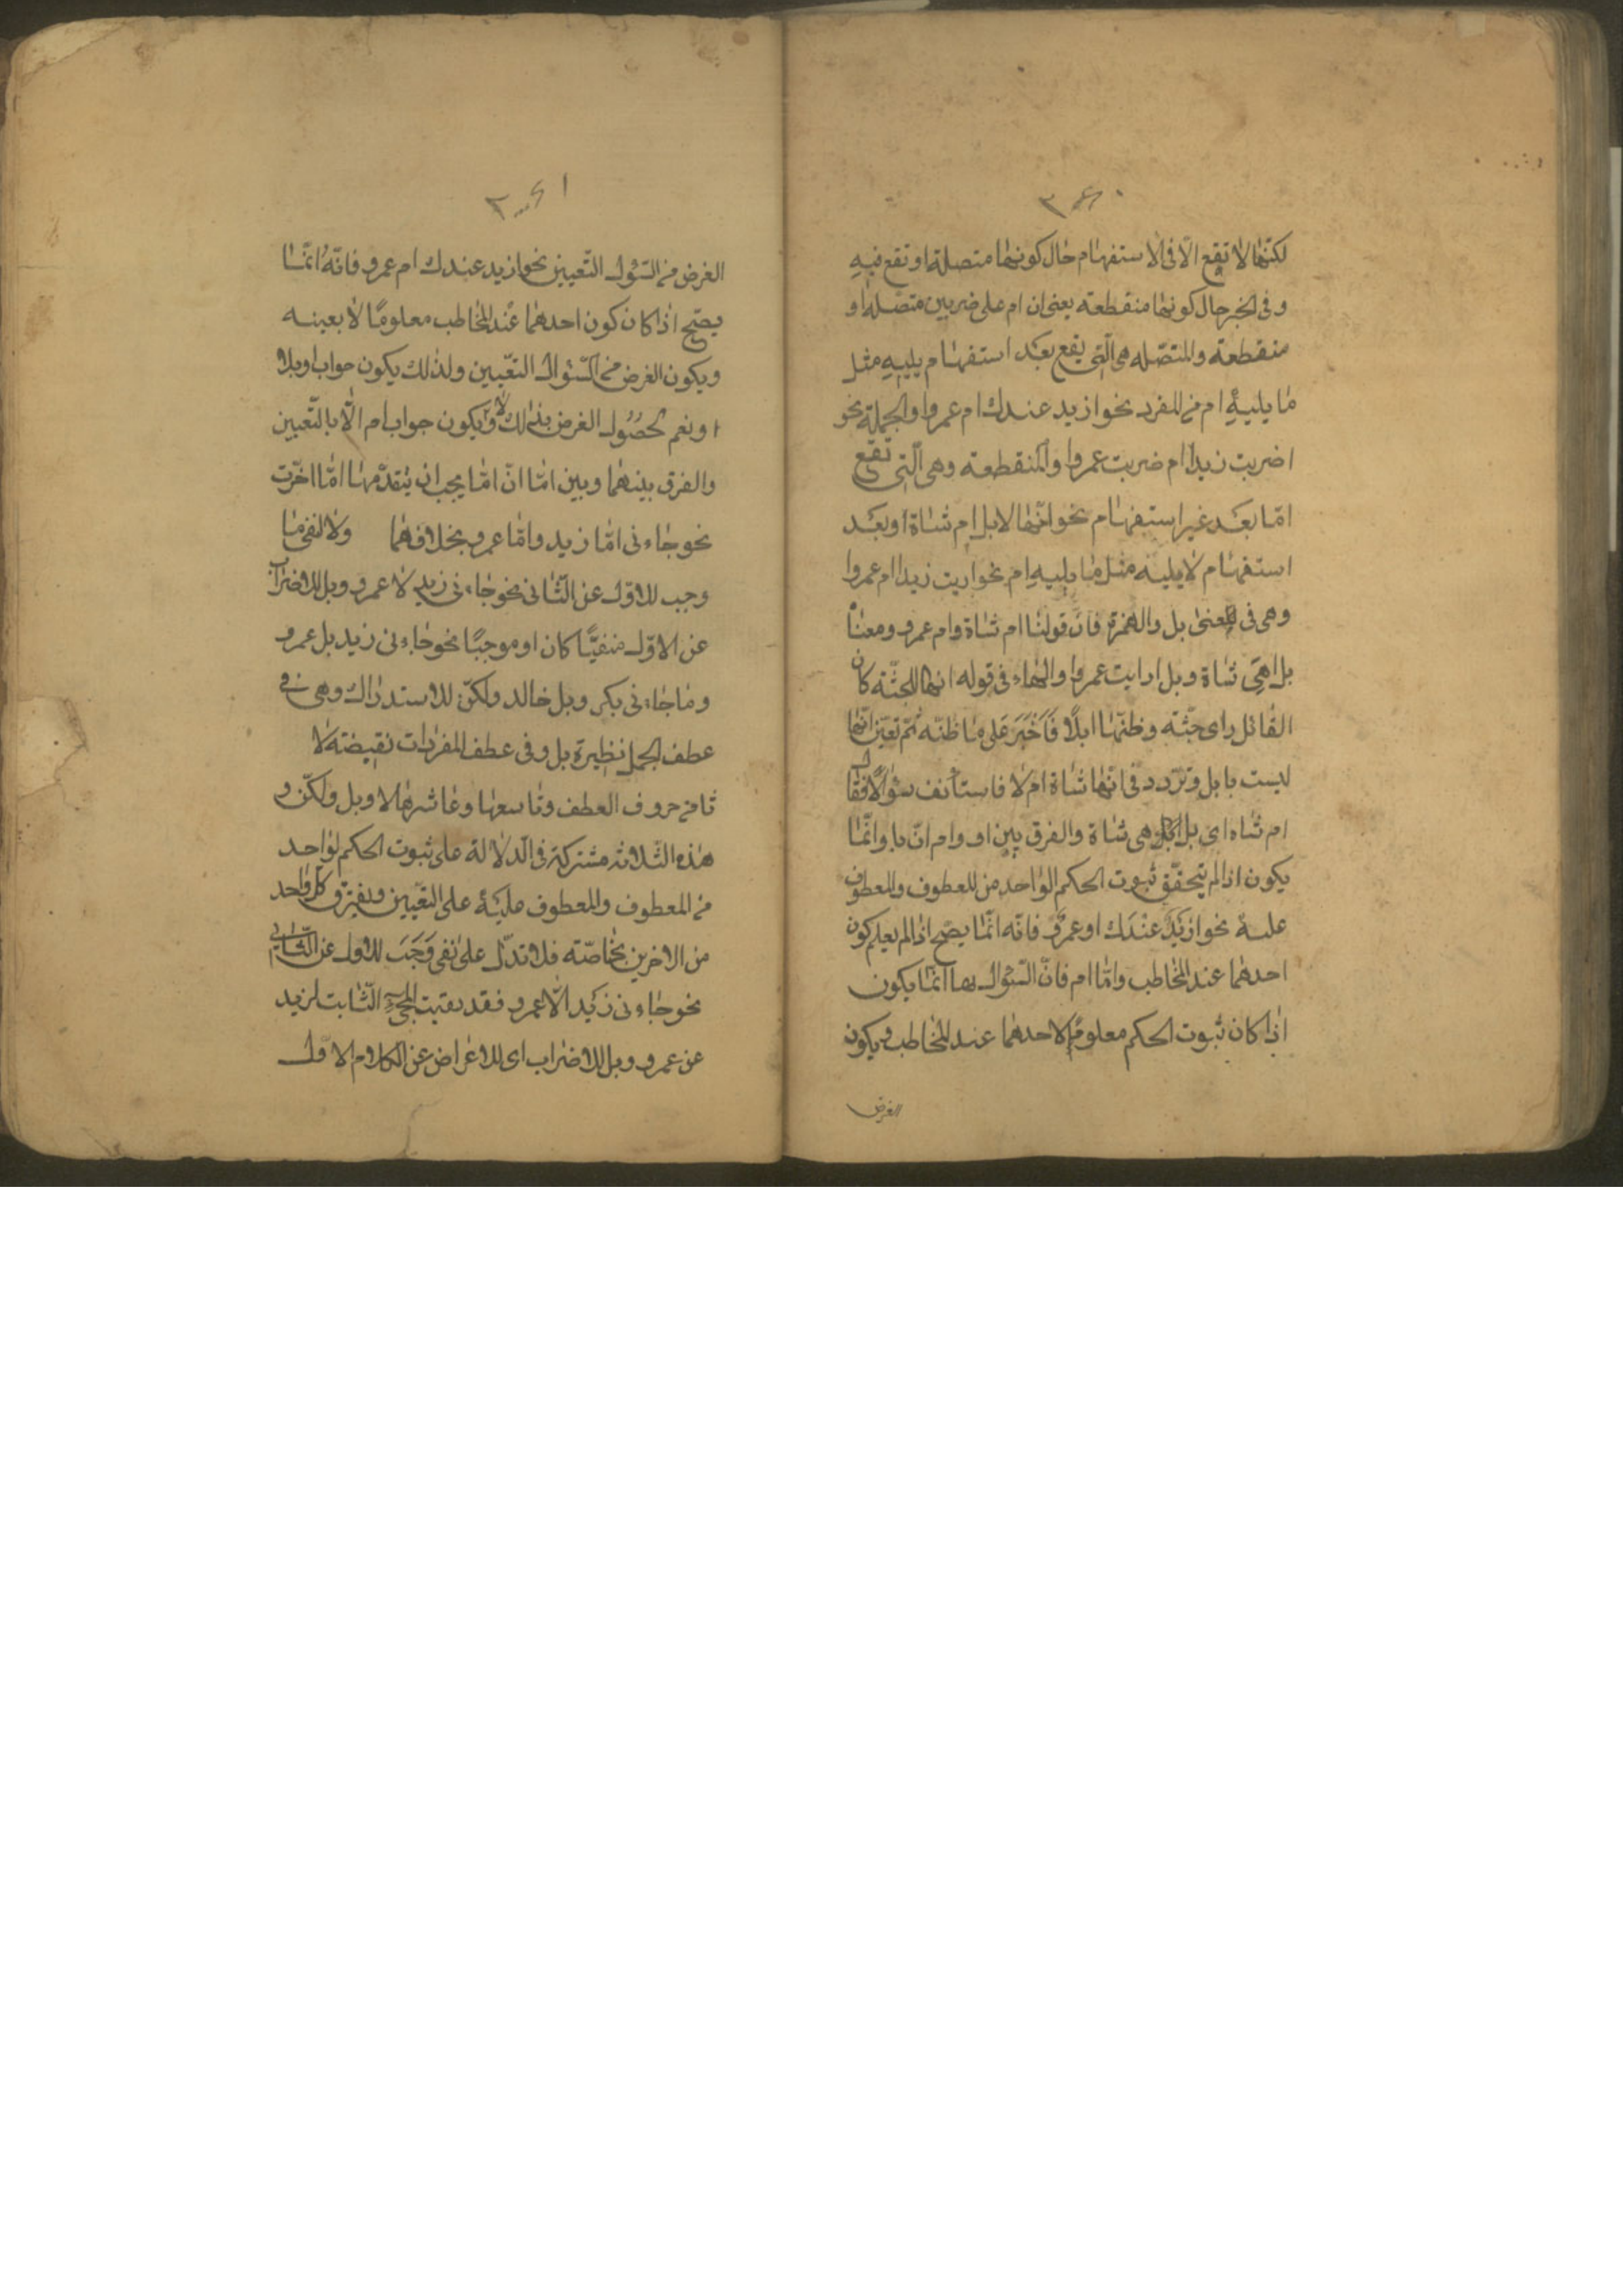 ٣٤٠
لكنّها لا تقع الّا فى الاستفهام حال كونها متصلة او تقع فيه
وفى الخبر حال كونها منقطعة يعنى ان ام على ضربين متصله او
منقطعة والمتصّله هى الّتى يقع بعد استفهام يليه مثل
ما يليه ام من المفرد نحو ازيد عندك ام عمروا والجملة نحو
اضربت زيدا ام ضربت عمروا والمنقطعة وهى الّتى تقع
امّا بعد غير استفهام نحو انّها لابل ام شاة أو بعد
استفهام لا يليه مثل ما يليه ام نحو اريت زيدا ام عمروا
وهى فى معنى بل والهمزة فانّ قولنا ام شاة وام عمرو ومعناه
بل اهى شاة وبل ارايت عمروا والهاء فى قوله انها للجثّة كان
القائل راى جثّته وظنّها ابلًا فَاَخْبَرَ عَلى ما ظنّه ثمّ تعيّن انّها
ليست بابل وتردد فى انّها شاة ام لا فاستأنف سؤالًا فقال
ام شاه اى بل هى شاة والفرق بين او وام انّ با وانّما
يكون اذا لم يتحقّق ثبوت الحكم الواحد من المعطوف والمعطوف
عليه نحو ازيد عندك او عمرو فانّه انّما يصّح اذا لم يعلم كون
احدهما عند المخاطب وامّا ام فانّ السّؤال بها انّما يكون
اذا كان ثبوت الحكم معلومًا لاحدهما عند المخاطب ويكون
الغرض
٣٤١
الغرض من السّؤال التّعيين نحو ازيد عندك ام عمرو فانّه انّما
يصّح اذا كان كون احدهما عند المخاطب معلومًا لا بعينه
ويكون الغرض من السّئوال التعّيين ولذلك يكون جواب او بلا
او ونعم لحصُول الغرض بذلك ولا يكون جواب ام الّا بالتّعيين
والفرق بينهما وبين امّا انّ امّا يجب ان يتقدّمها امّا اخرت
نحو جاءنى امّا زيد وامّا عمرو بخلافهما ولا لنفى ما
وجب للاوّل عن الثّانى نحو جاءنى زيد لا عمرو وبل للاضراب
عن الاوّل منفيًّا كان او موجبًا نحو جاءنى زيد بل عمرو
وما جاءنى بكر وبل خالد ولكنّ للاستدراك وهى فى
عطف الجمل نظيرة بل وفى عطف المفردات نقيضته لا
ثامن حروف العطف وتاسعها وعاشرها لا وبل ولكنّ و
هذه الثّلاثه مشتركة فى الّدلالة على ثبوت الحكم لواحد
من المعطوف والمعطوف عليه على التعّيين ويفترق كلّ واحد
من الاخرين بخاصّته فلا تدّل على نفى وَجَبَ للاول عن الثّانى
نحو جاءنى زيد الّا عمرو فقد بقيت المجئ الثّابت لزيد
عن عمرو وبل للاضراب اى للاعراض عن الكلام الاوّل